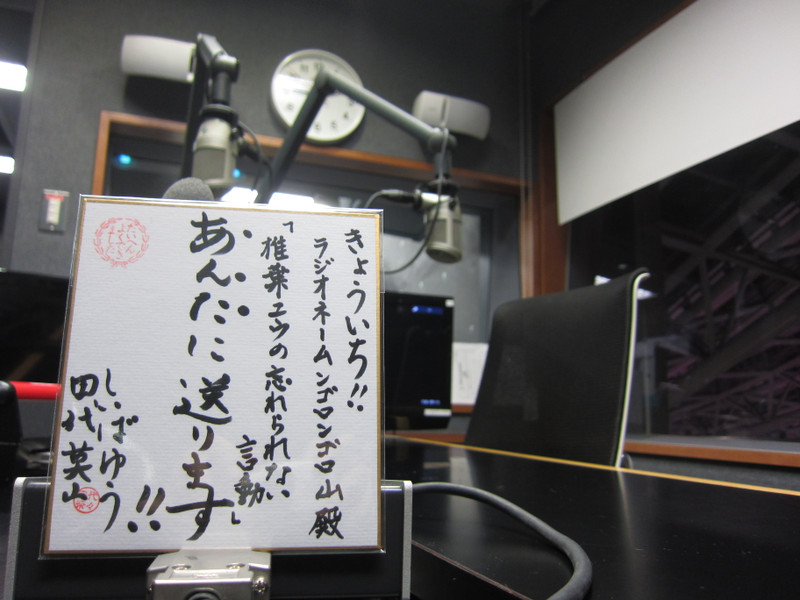 きょういち!!
ラジオネームンゴロンゴロ山殿
「椎葉ユウの忘れられない
言動」
あんたに送ります!!
しいばゆう
田代英山